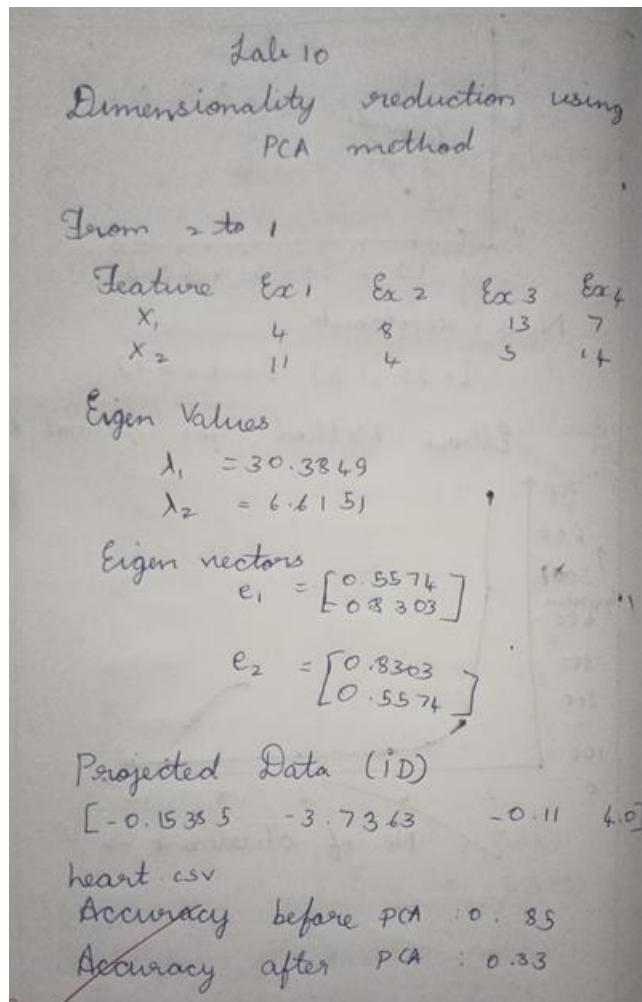 Lab 10
Dimensionality reduction using
PCA method
From 2 to 1
Feature Ex 1 Ex 2 Ex 3 Ex 4
X₁ 4 8 13 7
X₂ 11 4 5 14
Eigen Values
λ₁ = 30.3849
λ₂ = 6.6151
Eigen vectors
e₁ = [0.5574
-0.8303]
e₂ = [0.8303
0.5574]
Projected Data (1D)
[-0.15385 -3.7363 -0.11 4.0]
heart.csv
Accuracy before PCA : 0.85
Accuracy after PCA : 0.83